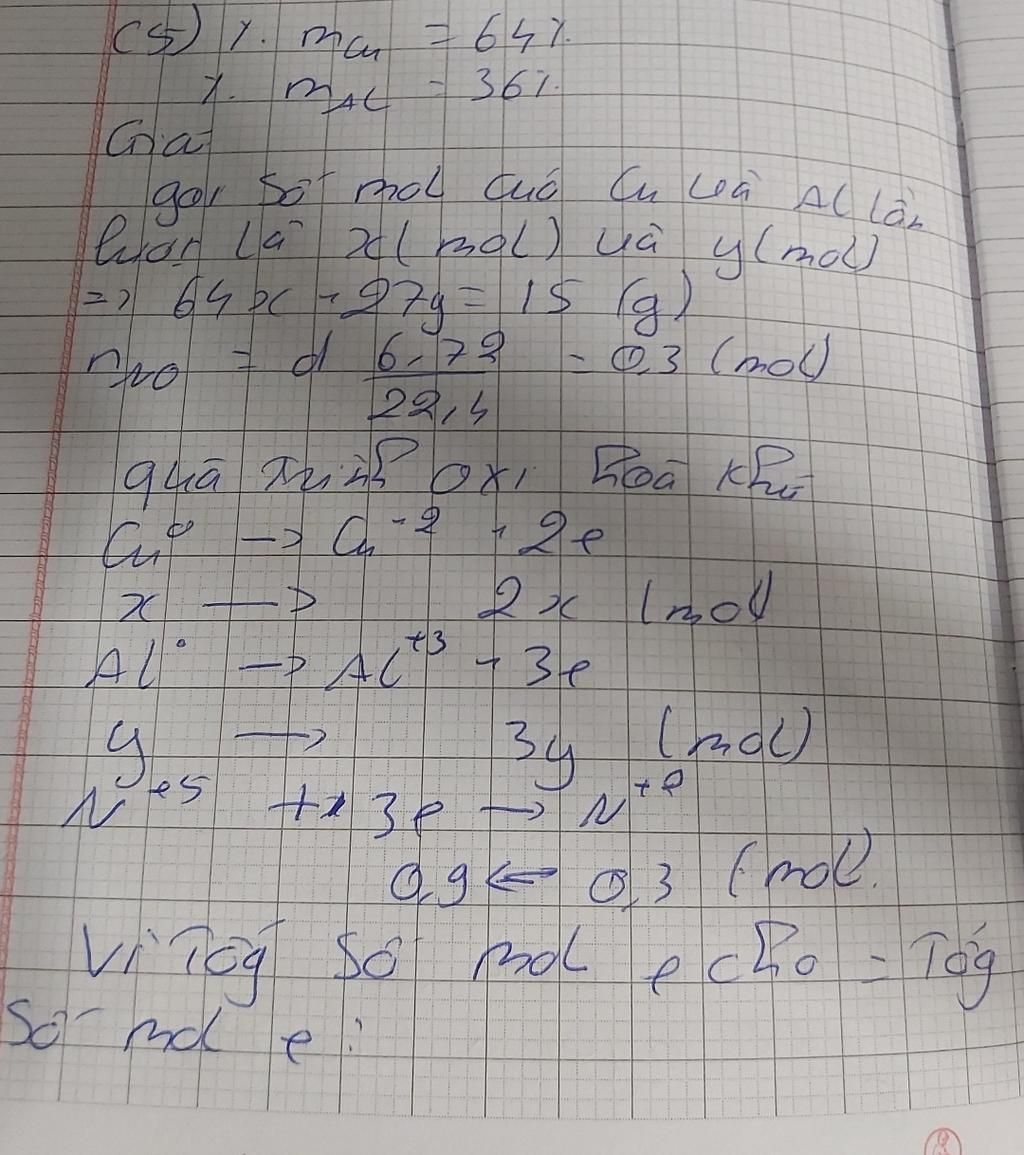 (5) %. mCu = 64%.
%. mAl = 36%.
Giả
gọi số mol của Cu và Al lần
lượt là x (mol) và y (mol)
=> 64x + 27y = 15 (g)
nNO = 6,72 / 22,4 = 0,3 (mol)
quá trình oxi hoá khử
Cu⁰ -> Cu⁺² + 2e
x -> 2x (mol)
Al⁰ -> Al⁺³ + 3e
y -> 3y (mol)
N⁺⁵ + 3e -> N⁺²
0,9 <- 0,3 (mol).
Vì Tổg số mol e cho = Tổg
số mol e :